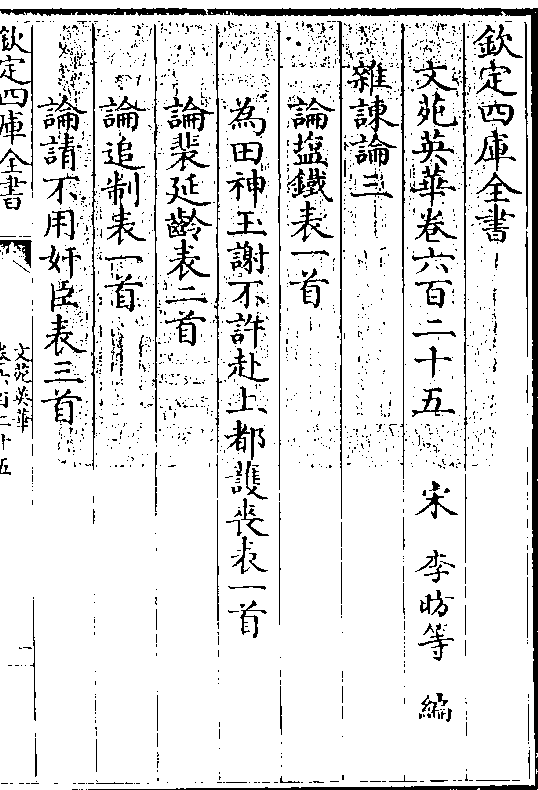 欽定四庫全書
文苑英華卷六百二十五
宋 李昉等 編
雜諫論三
論塩鐵表一首
為田神玉謝不許赴上都護喪表一首
論裴延齡表二首
論追制表一首
論請不用奸臣表三首
欽定四庫全書
文苑英華
卷六百二十五
一